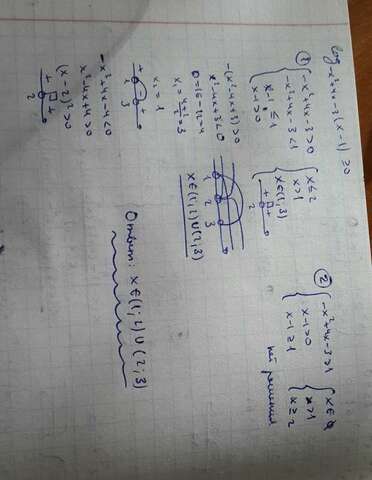 log₋ₓ²₊₄ₓ₋₃(x-1) ≥ 0
① { -x²+4x-3>0
-x²+4x-3<1
x-1 ≤ 1
x-1>0
{ x ≤ 2
x>1
x∈(1;3)
2
-(x²-4x+3)>0
x²-4x+3<0
D=16-12=4
x₁=(4+2)/2=3
x₂=1
+ - +
1 3
-x²+4x-4<0
x²-4x+4>0
(x-2)²>0
+ +
2
1 2 3
x∈(1;2)∪(2;3)
② { -x²+4x-3>1
x-1>0
x-1 ≥ 1
{ x∈∅
x>1
x ≥ 2
нет решения
Ответ: x∈(1;2)∪(2;3)